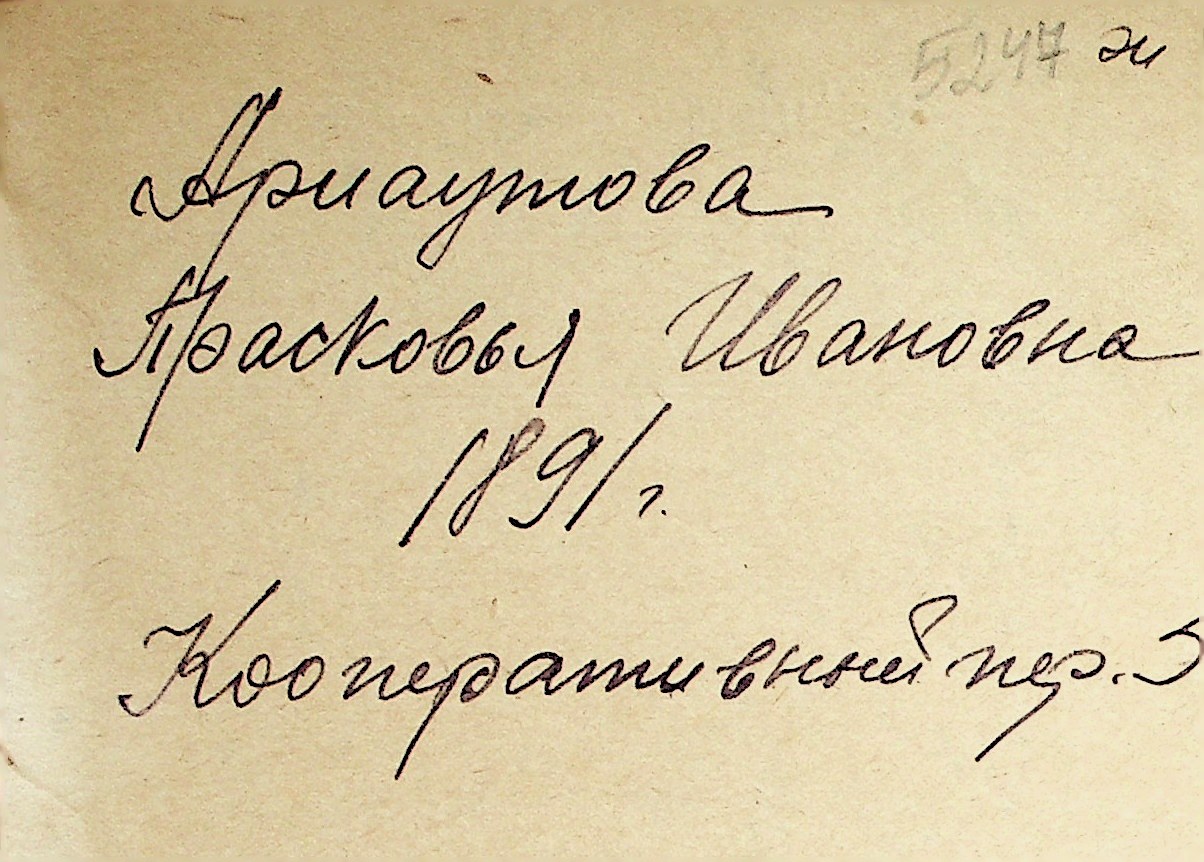 5247 ж
Арнаутова
Прасковья Ивановна
1891 г.
Кооперативный пер.